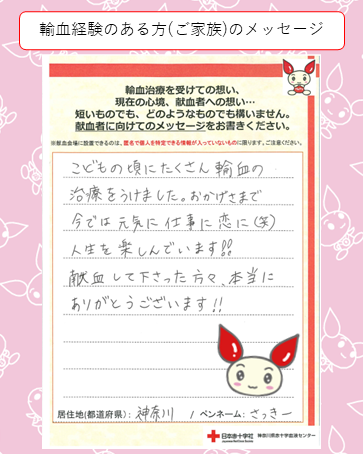 輸血経験のある方(ご家族)のメッセージ
輸血治療を受けての想い、
現在の心境、献血者への想い…
短いものでも、どのようなものでも構いません。
献血者に向けてのメッセージをお書きください。
※献血会場に設置できるのは、匿名で個人を特定できる情報が入っていないものに限ります。ご注意ください。
こどもの頃にたくさん輸血の
治療をうけました。おかげさまで
今では元気に仕事に恋に(笑)
人生を楽しんでいます!!
献血して下さった方々、本当に
ありがとうございます!!
居住地(都道府県): 神奈川 / ペンネーム: さっきー
日本赤十字社 神奈川県赤十字血液センター